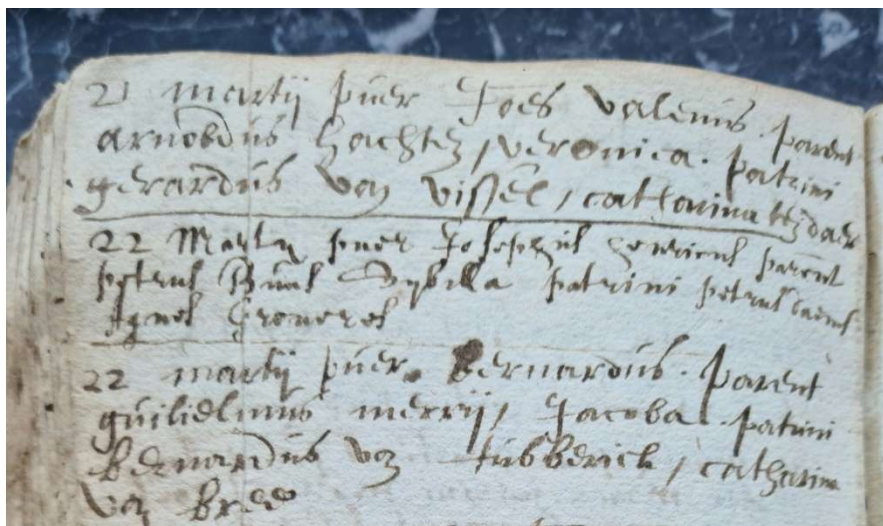 21 martij puer Joes valenus. parent
arnoldus hachten, veronica. patrini
gerardus von vissel, catharina
22 Martij puer Josephus parent
petrus Sybilla patrini petrus
Agnes
22 martij puer bernardus. parent
guilielmus merrij, Jacoba. patrini
bernardus von tubberick, catharina
von bree